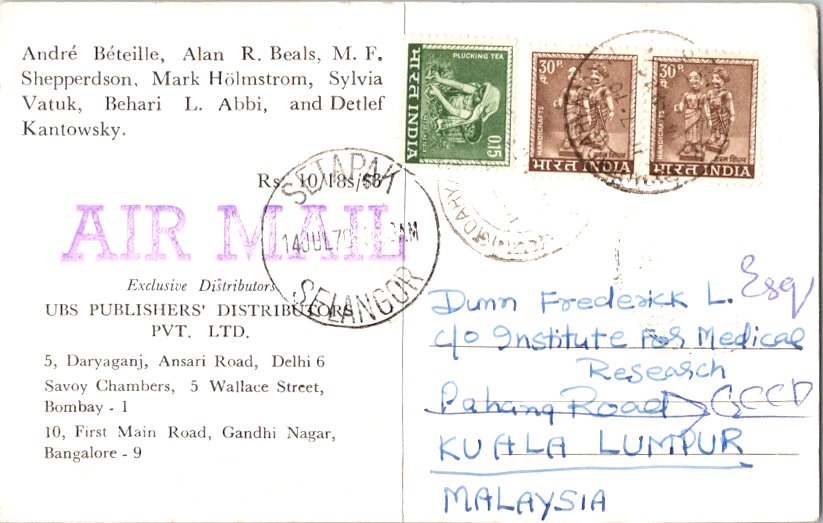 André Béteille, Alan R. Beals, M. F.
Shepperdson, Mark Hölmstrom, Sylvia
Vatuk, Behari L. Abbi, and Detlef
Kantowsky.
Rs. 10/18s/$3
AIR MAIL
Exclusive Distributors
UBS PUBLISHERS' DISTRIBUTORS
PVT. LTD.
5, Daryaganj, Ansari Road, Delhi 6
Savoy Chambers, 5 Wallace Street,
Bombay - 1
10, First Main Road, Gandhi Nagar,
Bangalore - 9
SETAPAK
14 JUL 70
AM
SELANGOR
PLUCKING TEA
भारत INDIA
0.15
30 P.
HANDICRAFTS
भारत INDIA
30 P.
HANDICRAFTS
भारत INDIA
Dunn Frederick L. Esq
c/o Institute For Medical
Research
Pahang Road
KUALA LUMPUR
MALAYSIA